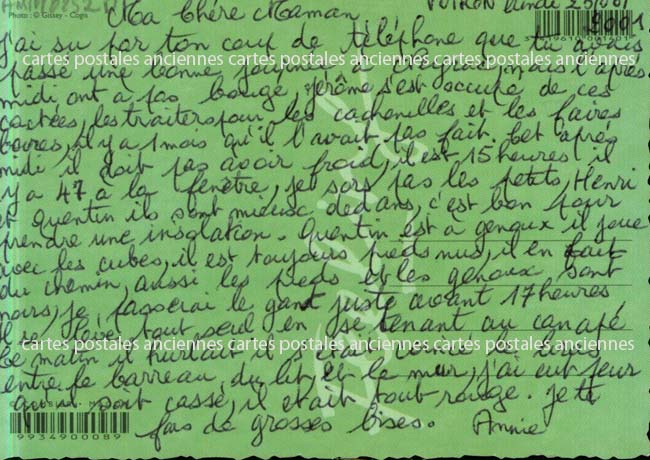 Photo : © Gissey - Cogis
VOIRON lundi
Ma Chère Maman
J'ai su par ton coup de téléphone que tu avais
passé une bonne journée à mais l'après
cartes postales anciennes cartes postales anciennes cartes postales anciennes cartes postales anciennes
midi ont a pas bougé, jérôme s'est occupé de ces
cactées, les traiters pour les cochenilles et les faires
boires, il y a 1 mois qu'il l'avait pas fait. Cet après
midi il doit pas avoir froid, il est 15 heures il
y a 47 à la fenêtre, je sors pas les petits, Henri
et Quentin ils sont mieux dedans, c'est bon pour
prendre une insolation. Quentin est a genoux il joue
avec les cubes, il est toujours pieds nus, il en fait
du chemin, aussi les pieds et les genoux sont
noirs, je passerai le gant juste avant 17 heures,
il se lève tout seul en se tenant au canapé
cartes postales anciennes cartes postales anciennes cartes postales anciennes cartes postales anciennes
Ce matin il hurlait il s'était coincé
entre le barreau, du lit et le mur, j'ai eut peur
qu'il soit cassé, il était tout rouge. je te
fais de grosses bises. Annie
9934900089